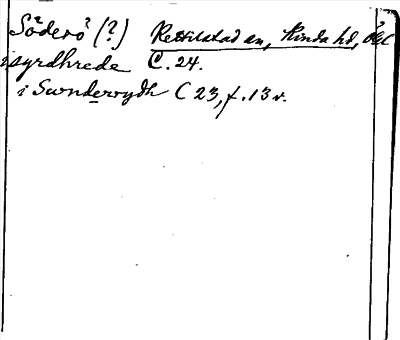 Söderö (?) Kettilstad sn, Kinda hd, Ögl
i syrdhrede C. 24.
i Swnderrydh C 23, f. 13 v.